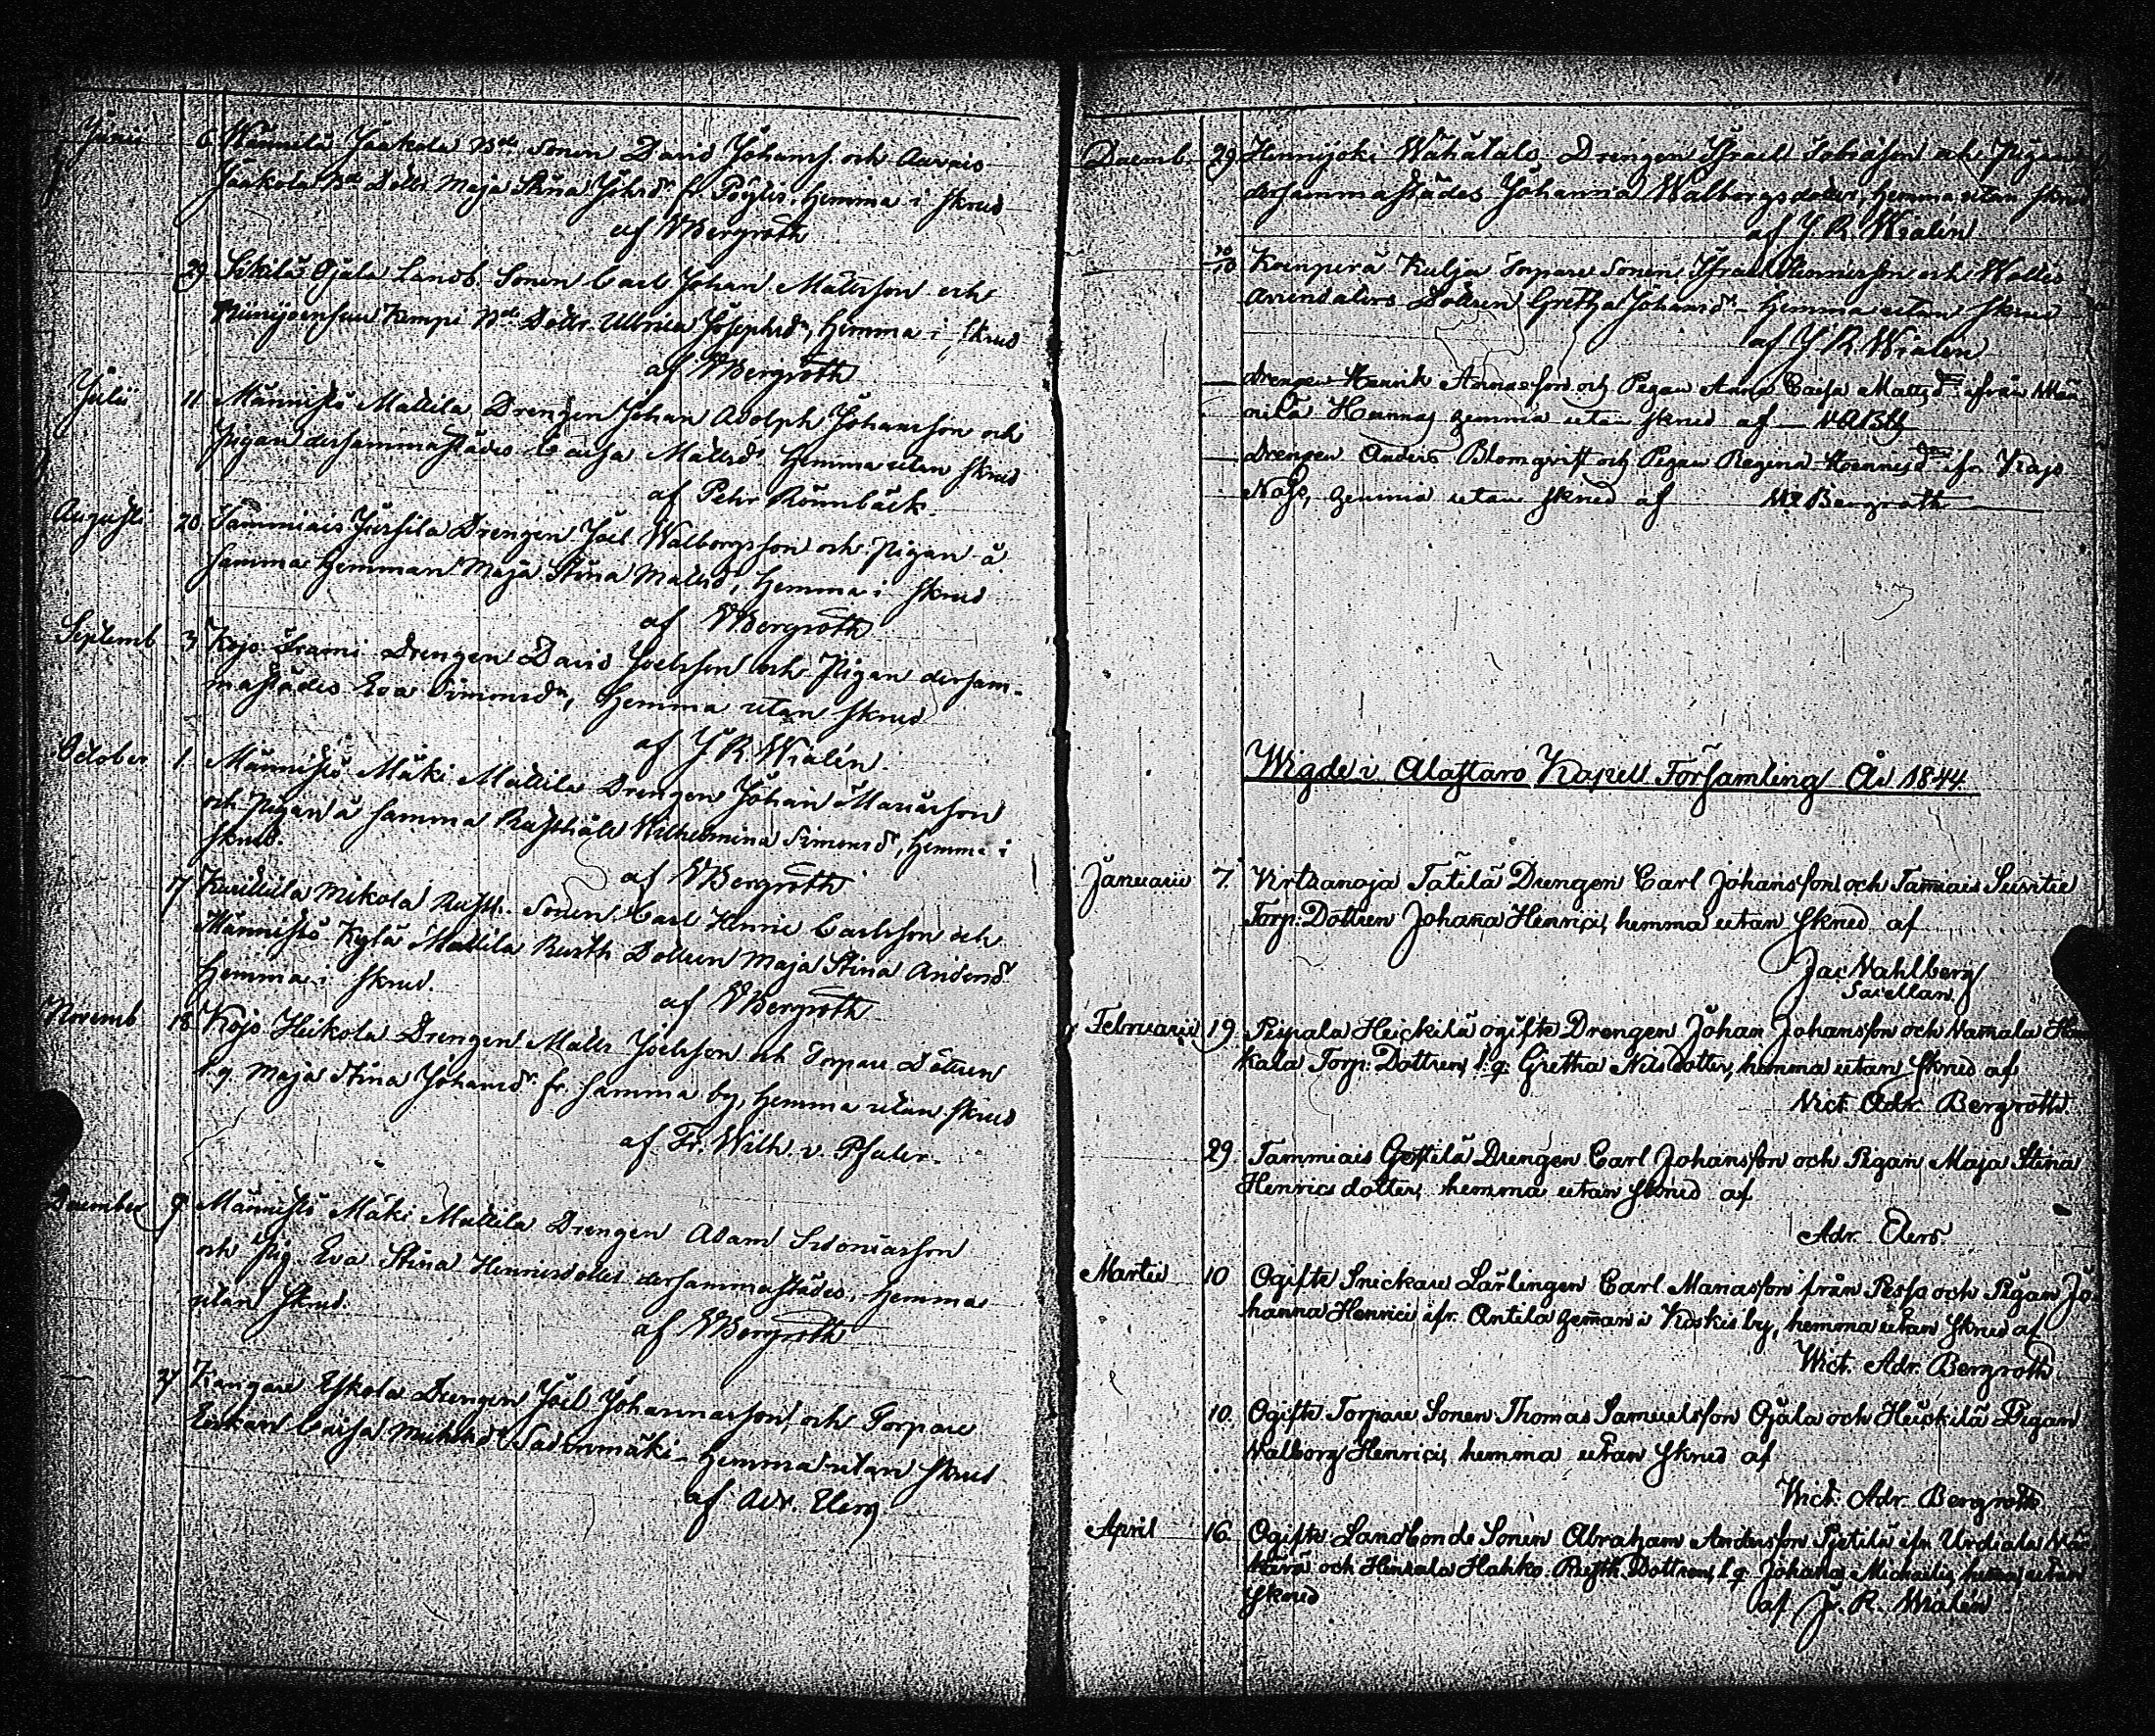 Junii 6 Wännilä Jaakola Bde Sonen David Johanss. och Auvais
Jaakola Bde Dottr Maja Stina Johsdr fr. Pöytis, hemma i skrud
af VBergroth
29 Ojala Landb. Sonen Carl Johan Mattsson och
Kempi Bde Dottr Ulbrica Josephsdr, hemma i skrud
af VBergroth
Julii 11 Männistö Mattila Drengen Johan Adolph Johansson och
Pigan dersammastädes Caisa Mattsdr hemma utan skrud
af Pehr Rönnbäck
Augusti 20 Tammiais Jussila Drengen Joel Walborgsson och Pigan å
samma Hemman Maja Stina Mattsdr, hemma i skrud
af VBergroth
Septemb 3 Kojo Drengen David Joelsson och Pigan dersam-
mastädes Eva Simonsdr, hemma utan skrud
af J R Wialén
October 1 Männistö Mäki Mattila Drengen Johan Mariasson
och Pigan å samma Rusthåll Wilhelmina Simonsdr, hemma i
skrud.
af VBergroth
17 Mikola Rusth. Sonen Carl Henric Carlsson och
Männistö Kylä Mattila Rusth Dottren Maja Stina Andersdr
hemma i skrud.
af VBergroth
Novemb 18 Kojo Heikola Drengen Matts Joelsson och Torpare Dottren
l. q. Maja Stina Johansdr fr. samma by, hemma utan skrud
af Fr. Wilh. v. Pfaler.
December 9 Männistö Mäki Mattila Drengen Adam Sidoniasson
och Pig. Eva Stina Henricsdotter dersammastädes, hemma
utan skrud.
af VBergroth
27 Eskola Drengen Joel Johannasson, och Torpare
Enkan Caisa hemma utan skrud
af Adr. Elers
Decemb. 29 Hennijoki Wähätalo Drengen Israel Tobiasson och Pigan
dersammastädes Johanna Walborgsdotter, hemma utan skrud
af J R Wialén
Koenperä Kulja Torpare Sonen Israel Henricsson och
Dottren Gretha Johansdr hemma utan skrud
af J R. Wialén
Drengen Henrik Annasson och Pigan Anna Caisa Mattsd ifrån Män
nilä hemma utan skrud af VABth
Drengen Anders Blomqvist och Pigan Regina Henricsd ifr. Kojo
hemma utan skrud af VA Bergroth
Wigde i Alastaro Kapell Församling År 1844.
Januarii 7. Virtsanoja Tätilä Drengen Carl Johansson och Tamiais
Torp: Dottren Johana Henrici, hemma utan skrud af
Jac Wahlberg
Sacellan.
Februarii 19. Peipala Heickilä ogifte Drengen Johan Johansson och Vamala
kala Torp: Dottren, l. q. Gretha Nils dotter, hemma utan skrud af
Vict. Adr. Bergroth.
29. Tammiais Drengen Carl Johansson och Pigan Maja Stina
Henrics dotter, hemma utan skrud af
Adr. Elers.
Martii 10 Ogifte Snickare Lärlingen Carl Mariasson från och Pigan Jo
hanna Henrici ifr. Antila heman i Koskis by, hemma utan skrud af
Vict. Adr. Bergroth.
10. Ogifte Torpare Sonen Thomas Samuelsson Ojala och Heickilä Pigan
Valborg Henrici, hemma utan skrud af
Vict. Adr. Bergroth
April 16. Ogifte Landbonde Sonen Abraham Andersson ifr. Urdiala
och Hahko Rusth Dottren, l. q. Johana Michaelis, hema utan
skrud
af J. R. Wialén